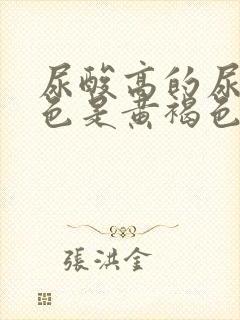 尿酸高的尿
色是黄褐色
張洪金